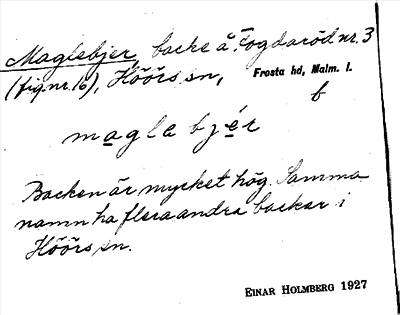 Maglebjer, backe å Fogdaröd nr. 3
(fig. nr. 16), Höörs sn,
Frosta hd, Malm. l.
b
maglebjér
Backen är mycket hög. Samma
namn ha flera andra backar i
Höörs sn.
EINAR HOLMBERG 1927